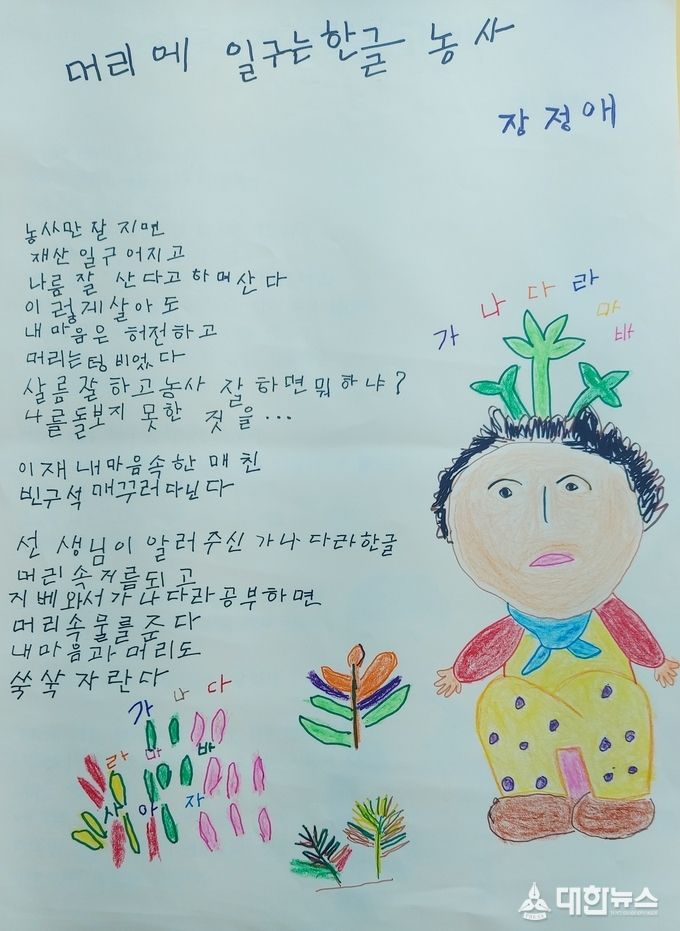 머리에 일구는 한글 농사
장정애
농사만 잘 지면
재산 일구어지고
나름 잘 산다고 하며 산다
이렇게 살아도
내 마음은 허전하고
머리는 텅 비었다
살름 잘 하고 농사 잘 하면 뭐하냐?
나를 돌보지 못한 짓을...
이재 내 마음속 한 매친
빈구석 매꾸러 다닌다
선생님이 알러주신 가나다라 한글
머리속 거름되고
지베와서 가나다라 공부하면
머리속 물를 준다
내 마음과 머리도
쑥쑥 자란다
가 나 다 라 마 바
가 나 다
라 마 바
사 아 자
대한뉴스